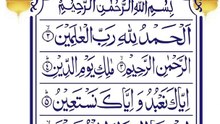 بِسْمِ اللّٰهِ الرَّحْمٰنِ الرَّحِيْمِ
اَلْحَمْدُ لِلّٰهِ رَبِّ الْعٰلَمِيْنَ ۝٢
الرَّحْمٰنِ الرَّحِيْمِ ۝٣ مٰلِكِ يَوْمِ الدِّيْنِ ۝٤
اِيَّاكَ نَعْبُدُ وَاِيَّاكَ نَسْتَعِيْنُ ۝٥